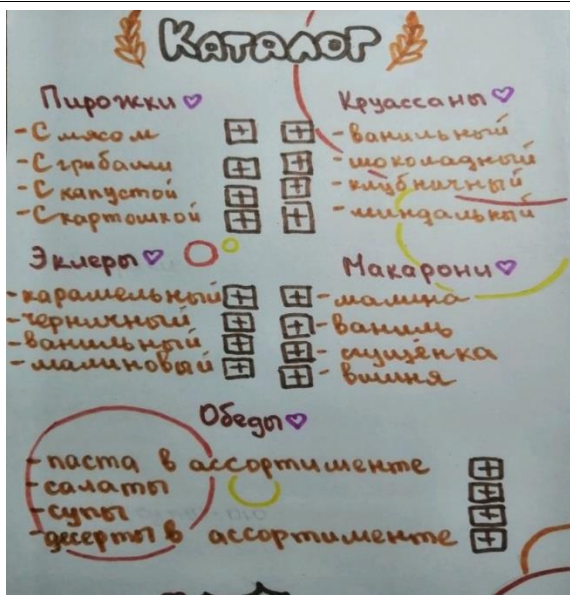 Каталог
Пирожки
- С мясом
- С грибами
- С капустой
- С картошкой
Круассаны
- ванильный
- шоколадный
- клубничный
- миндальный
Эклеры
- карамельный
- черничный
- ванильный
- малиновый
Макарони
- малина
- ваниль
- сгущёнка
- вишня
Обеды
- паста в ассортименте
- салаты
- супы
- десерты в ассортименте